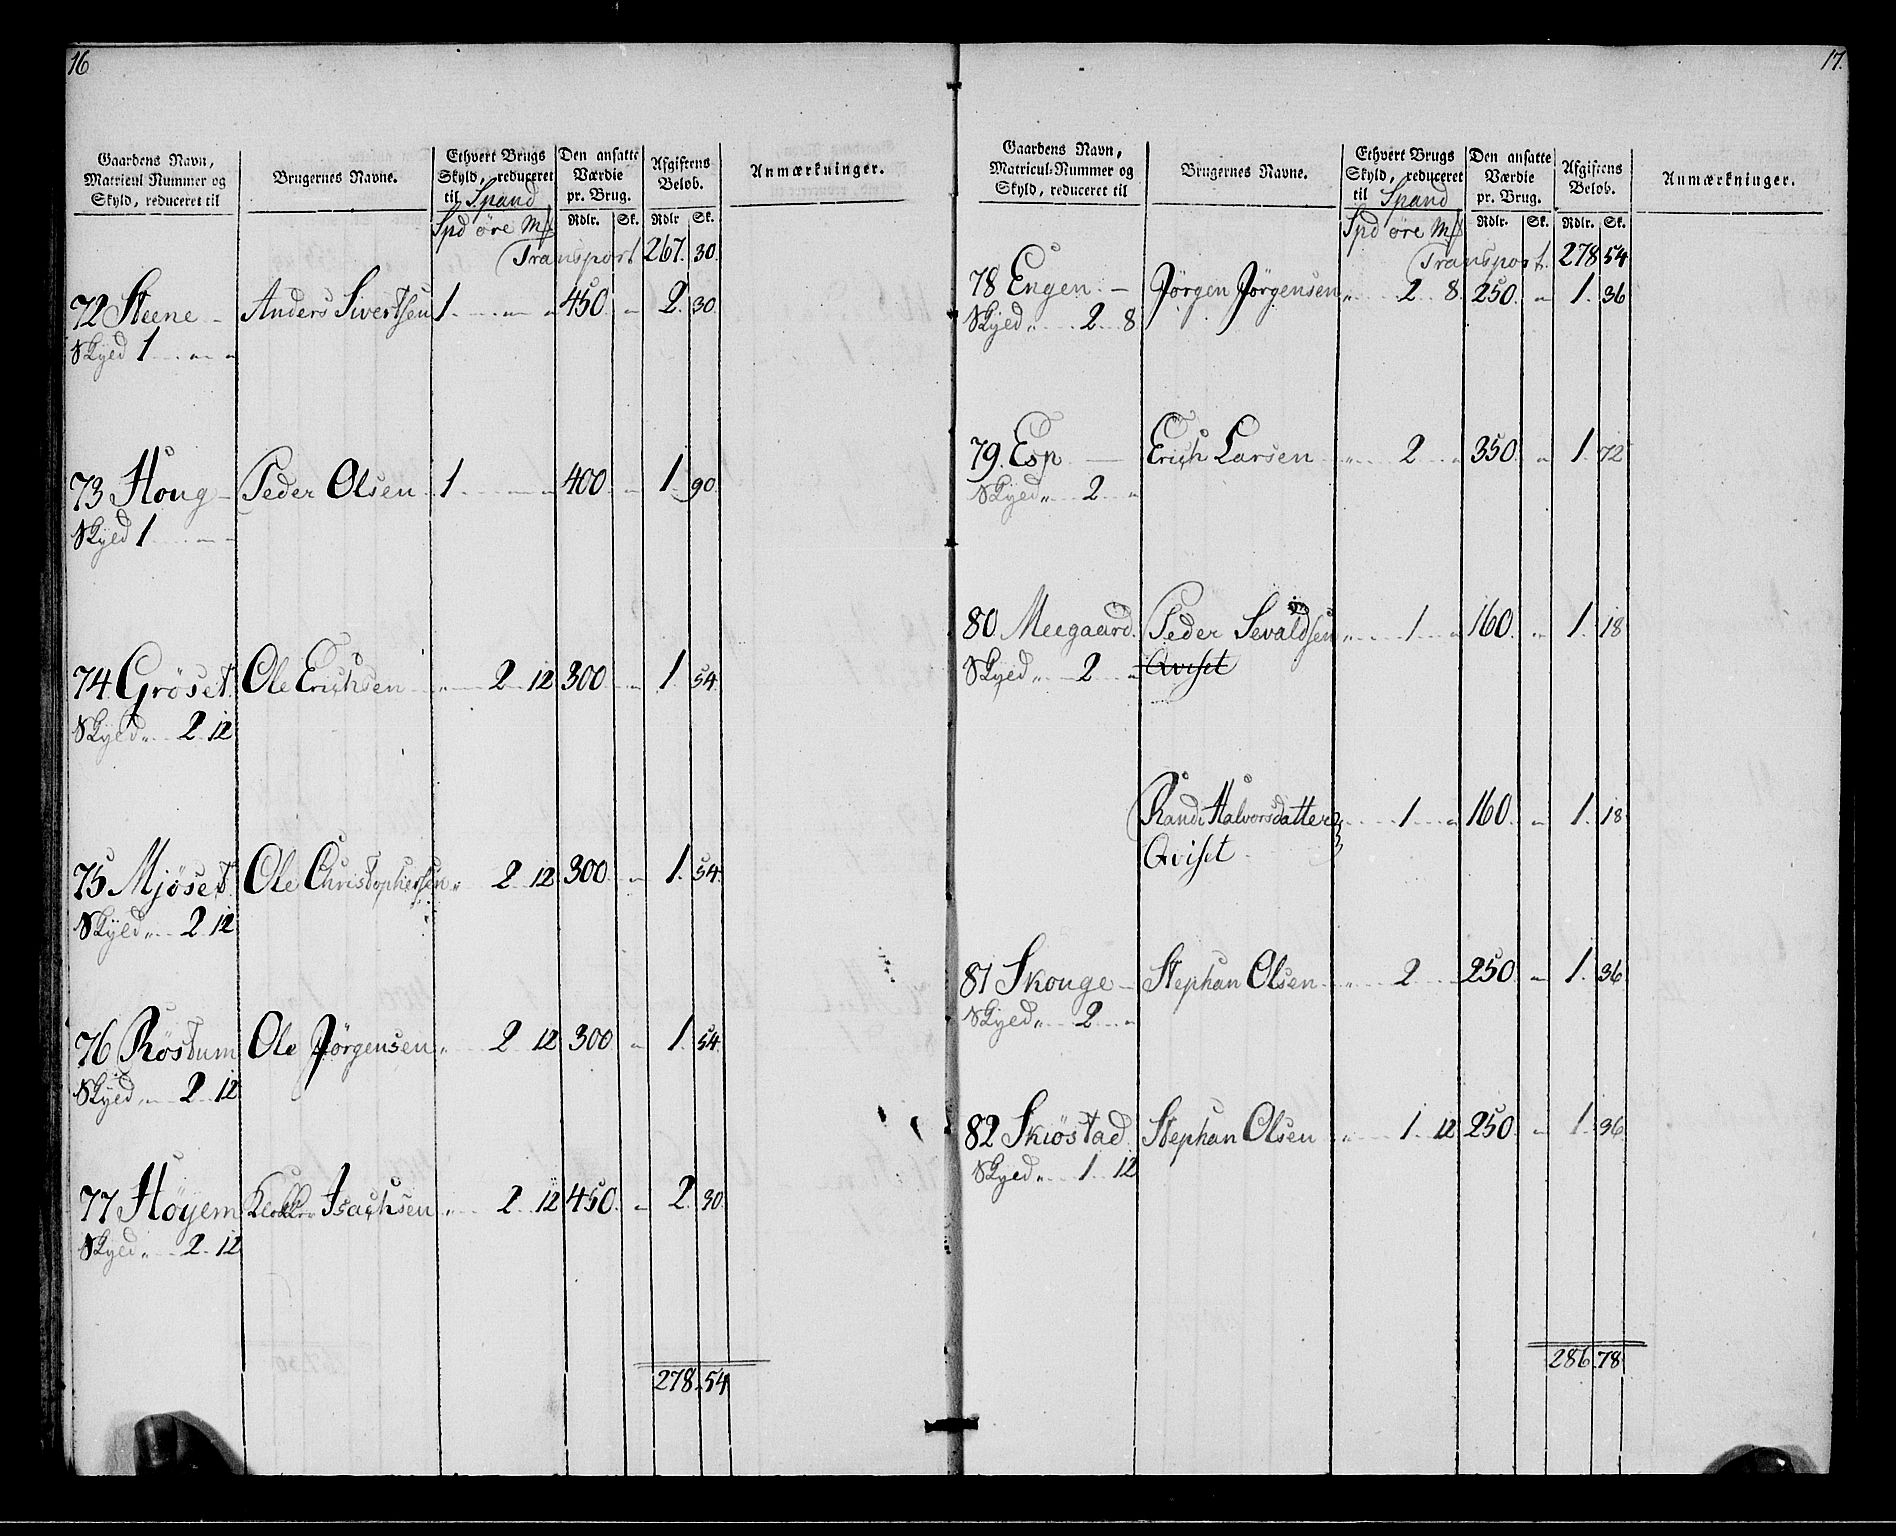 16
Gaardens Navn, Matricul Nummer og Skyld, reduceret til
Brugernes Navne.
Ethvert Brugs Skyld, reduceret til Spand
Den ansatte Værdie pr. Brug.
Afgiftens Beløb.
Anmærkninger.
Spd øre Mſ Rdlr. Sk. Rdlr Sk.
Transport 267. 30.
72 Steene - Anders Sivertsen 1 " " 450 " 2. 30.
Skyed 1 " "
73 Houg - Peder Olsen 1 " " 400 " 1. 90.
Skyed 1 " "
74 Gröset. Ole Erichsen " 2 12 300 " 1. 54.
Skyed " 2 12
75 Mjöset. Ole Christophersen " 2 12 300 " 1. 54.
Skyed " 2 12
76 Röstum Ole Jörgensen " 2 12 300 " 1. 54.
Skyed " 2 12
77 Höyem Klokker Isachsen " 2 12 450 " 2. 30.
Skyed " 2 12
278. 54
17.
Gaardens Navn, Matricul-Nummer og Skyld, reduceret til
Brugernes Navne.
Ethvert Brugs Skyld, reduceret til Spand
Den ansatte Værdie pr. Brug.
Afgiftens Beløb.
Anmærkninger.
Spd øre Mſ Rdlr. Sk. Rdlr. Sk.
Transport. 278 54
78 Engen - Jörgen Jörgensen " 2 8. 250. " 1. 36
Skyed " 2 8
79. Esp - Erich Larsen " 2 " 350. " 1. 72
Skyed " 2 "
80 Meegaard. Peder Sevaldsen " 1 " 160. " 1. 18
Skyed " 2 " Qviset
Randi Halvorsdatter " 1 " 160. " 1. 18
Qviset
81 Skouge - Stephan Olsen " 2 " 250. " 1. 36
Skyed " 2 "
82 Skiöstad. Stephan Olsen " 1 12 250. " 1. 36
Skyed " 1 12
286. 78